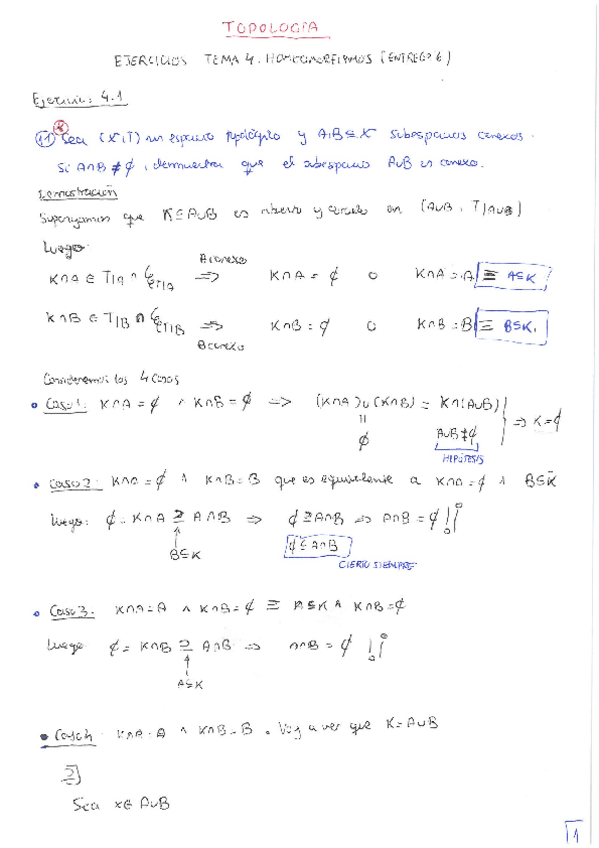 TOPOLOGÍA
EJERCICIOS TEMA 4. HOMEOMORFISMOS (ENTREGA 6)
Ejercicio 4.1
11) Sea (X,T) un espacio topológico y A,B⊆X subespacios conexos.
Si A∩B ≠ ∅, demuestra que el subespacio A∪B es conexo.
Demostración
Supongamos que K⊆A∪B es abierto y cerrado en (A∪B, T|A∪B)
Luego:
K∩A ∈ T|A ∩ C_T|A ⇒ A conexo K∩A = ∅ o K∩A = A ≡ A⊆K
K∩B ∈ T|B ∩ C_T|B ⇒ B conexo K∩B = ∅ o K∩B = B ≡ B⊆K.
Consideremos los 4 casos
• Caso 1: K∩A = ∅ ∧ K∩B = ∅ => (K∩A)∪(K∩B) = K∩(A∪B) ⇒ K=∅
||
∅
A∪B ≠ ∅
HIPÓTESIS
• Caso 2: K∩A = ∅ ∧ K∩B = B que es equivalente a K∩A = ∅ ∧ B⊆K
Luego: ∅ = K∩A ⊇ A∩B ⇒ ∅ ⊇ A∩B ⇒ A∩B = ∅ !¡
↑
B⊆K
∅ ⊆ A∩B
CIERTO SIEMPRE
• Caso 3: K∩A = A ∧ K∩B = ∅ ≡ A⊆K ∧ K∩B = ∅
Luego ∅ = K∩B ⊇ A∩B ⇒ A∩B = ∅ !¡
↑
A⊆K
• Caso 4: K∩A = A ∧ K∩B = B. Voy a ver que K = A∪B
⊇]
Sea x∈ A∪B
1